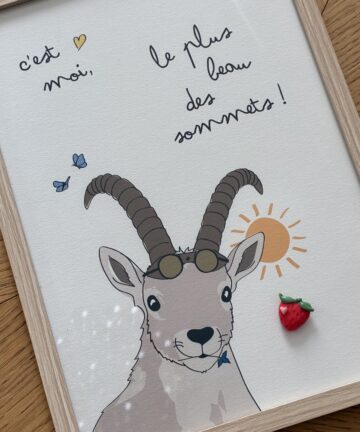 c'est
moi,
le plus
beau
des
sommets !